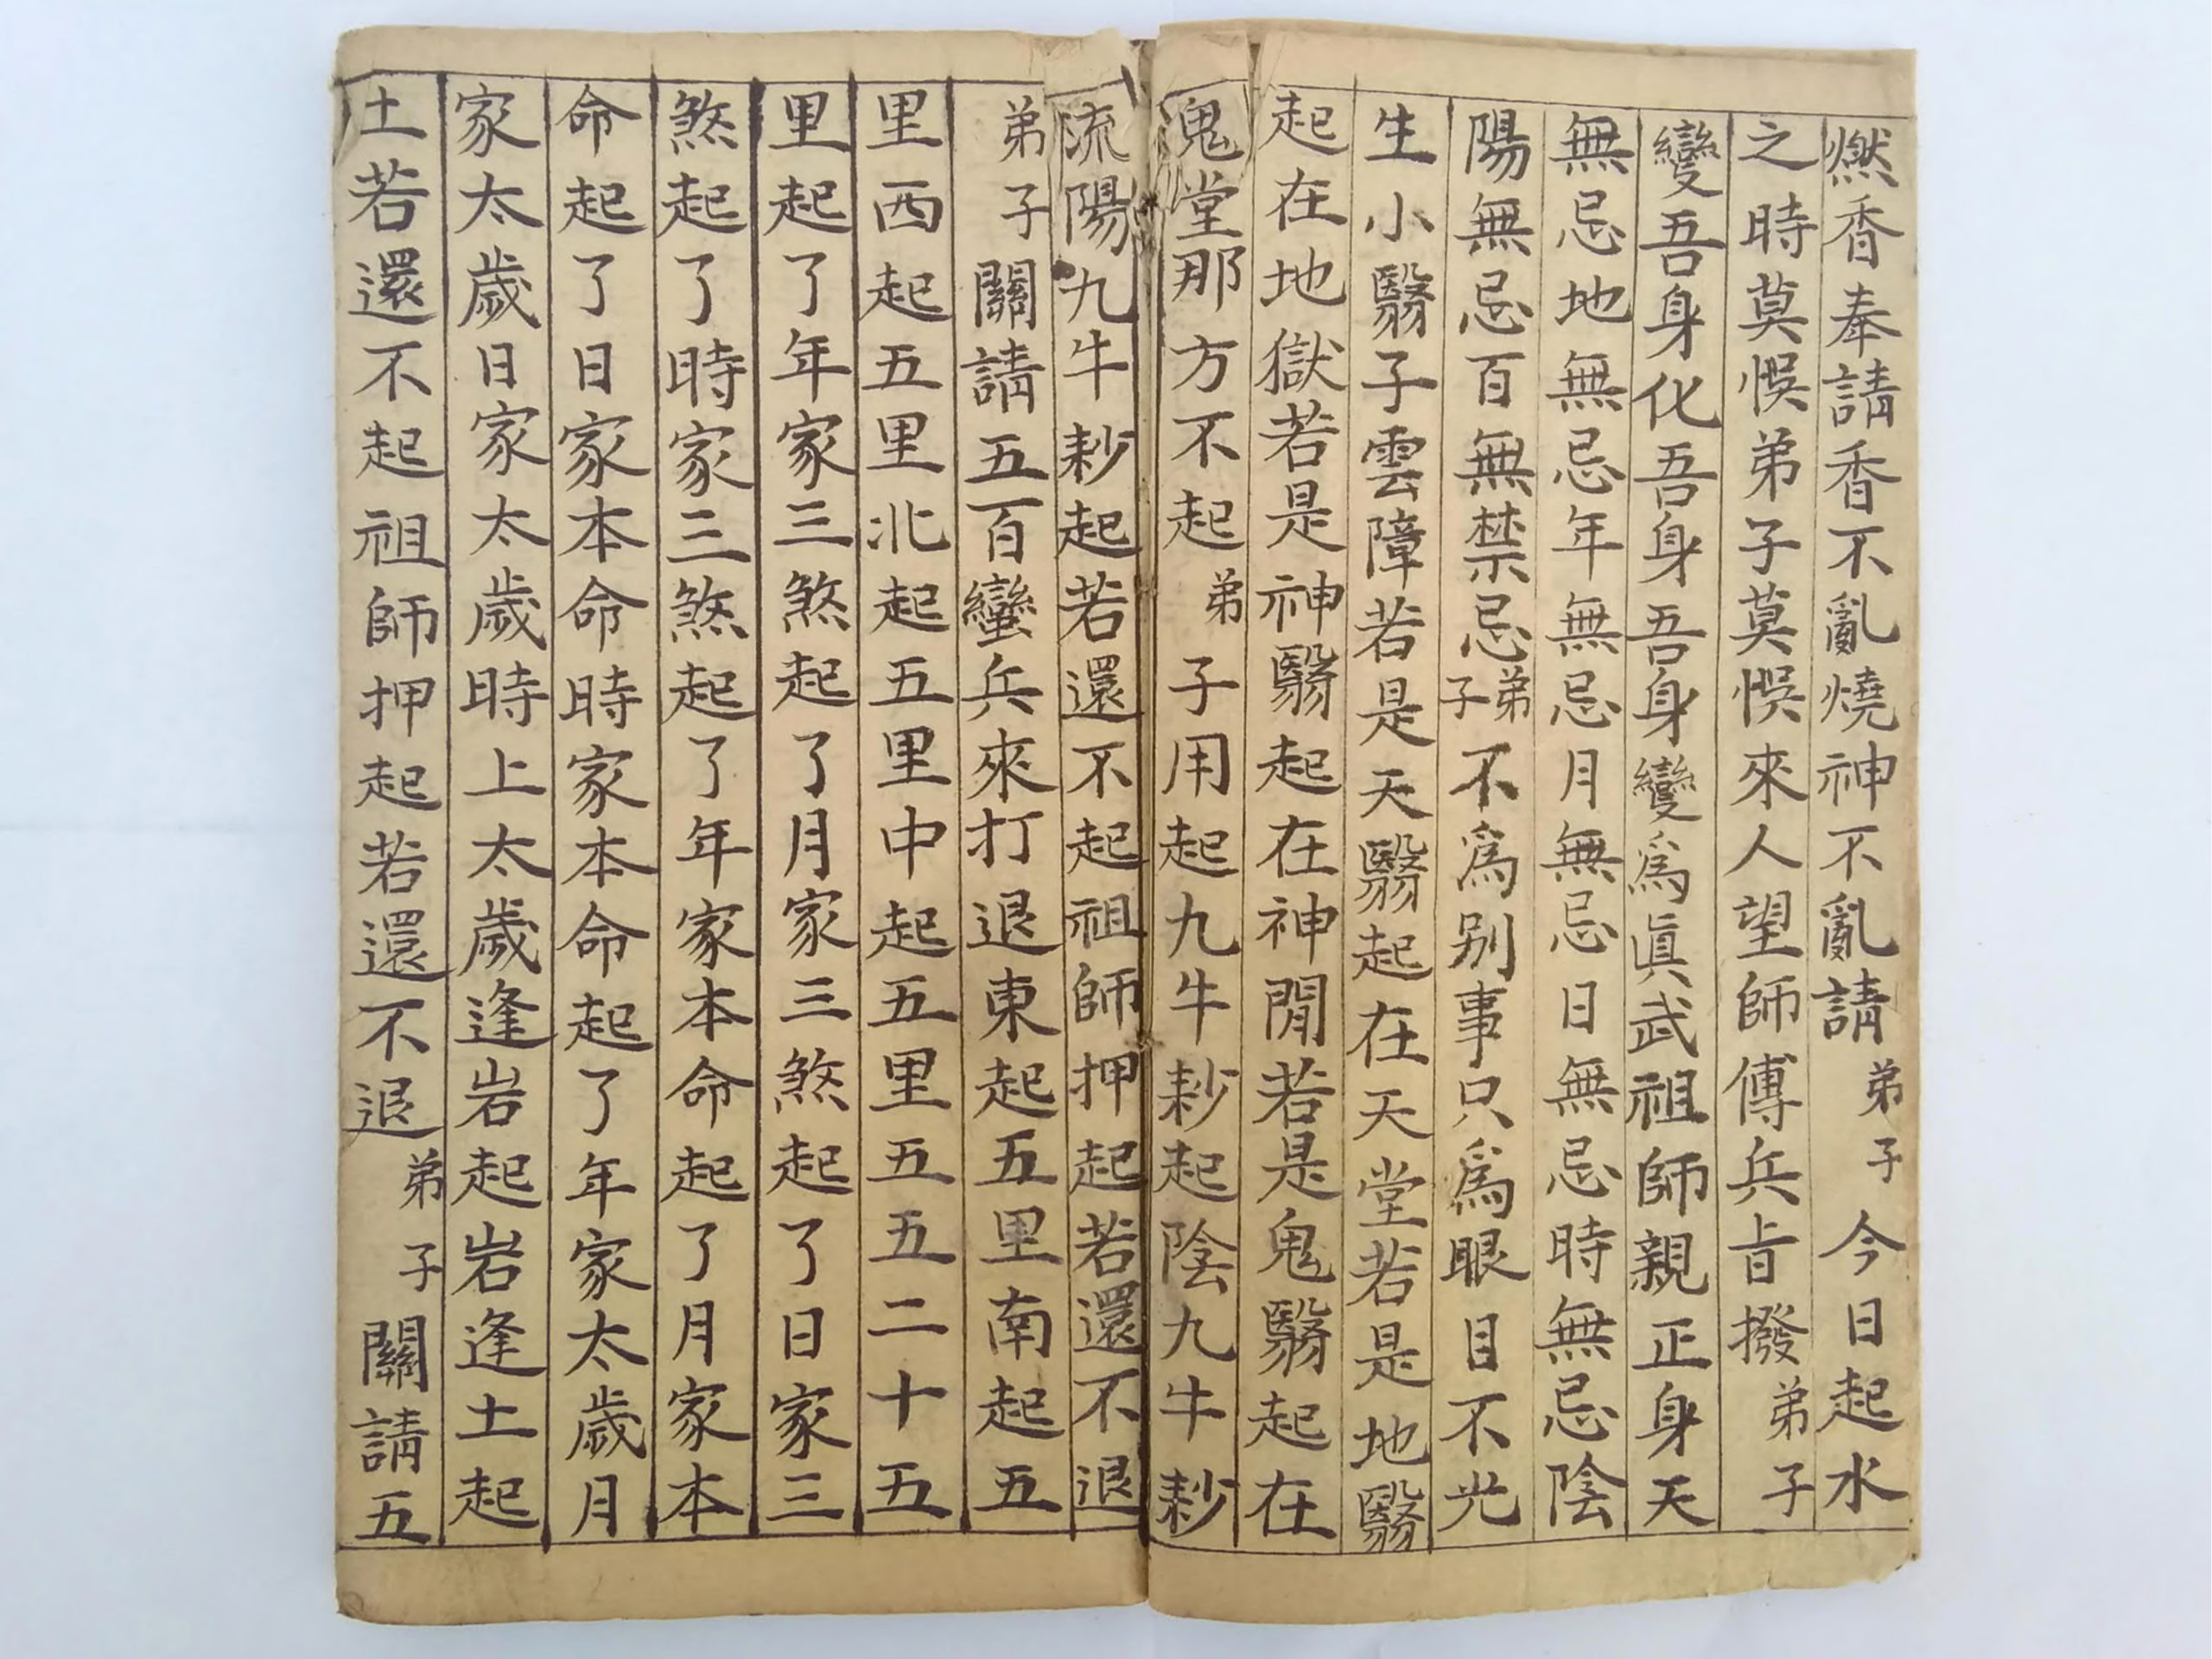 燃香奉請香不亂燒神不亂請弟子今日起水
之時莫悞弟子莫悞來人望師傅兵㫖撥弟子
變吾身化吾身吾身變為眞武祖師親正身天
無忌地無忌年無忌月無忌日無忌時無忌陰
陽無忌百無禁忌弟子不為別事只為眼目不光
生小翳子雲障若是天翳起在天堂若是地翳
起在地獄若是神翳起在神閒若是鬼翳起在
鬼堂那方不起弟子用起九牛耖起陰九牛耖
流陽九牛耖起若還不起祖師押起若還不退
弟子關請五百蠻兵來打退東起五里南起五
里西起五里北起五里中起五里五五二十五
里起了年家三煞起了月家三煞起了日家三
煞起了時家三煞起了年家本命起了月家本
命起了日家本命時家本命起了年家太歲月
家太歲日家太歲時上太歲逢岩起岩逢土起
土若還不起祖師押起若還不退弟子關請五